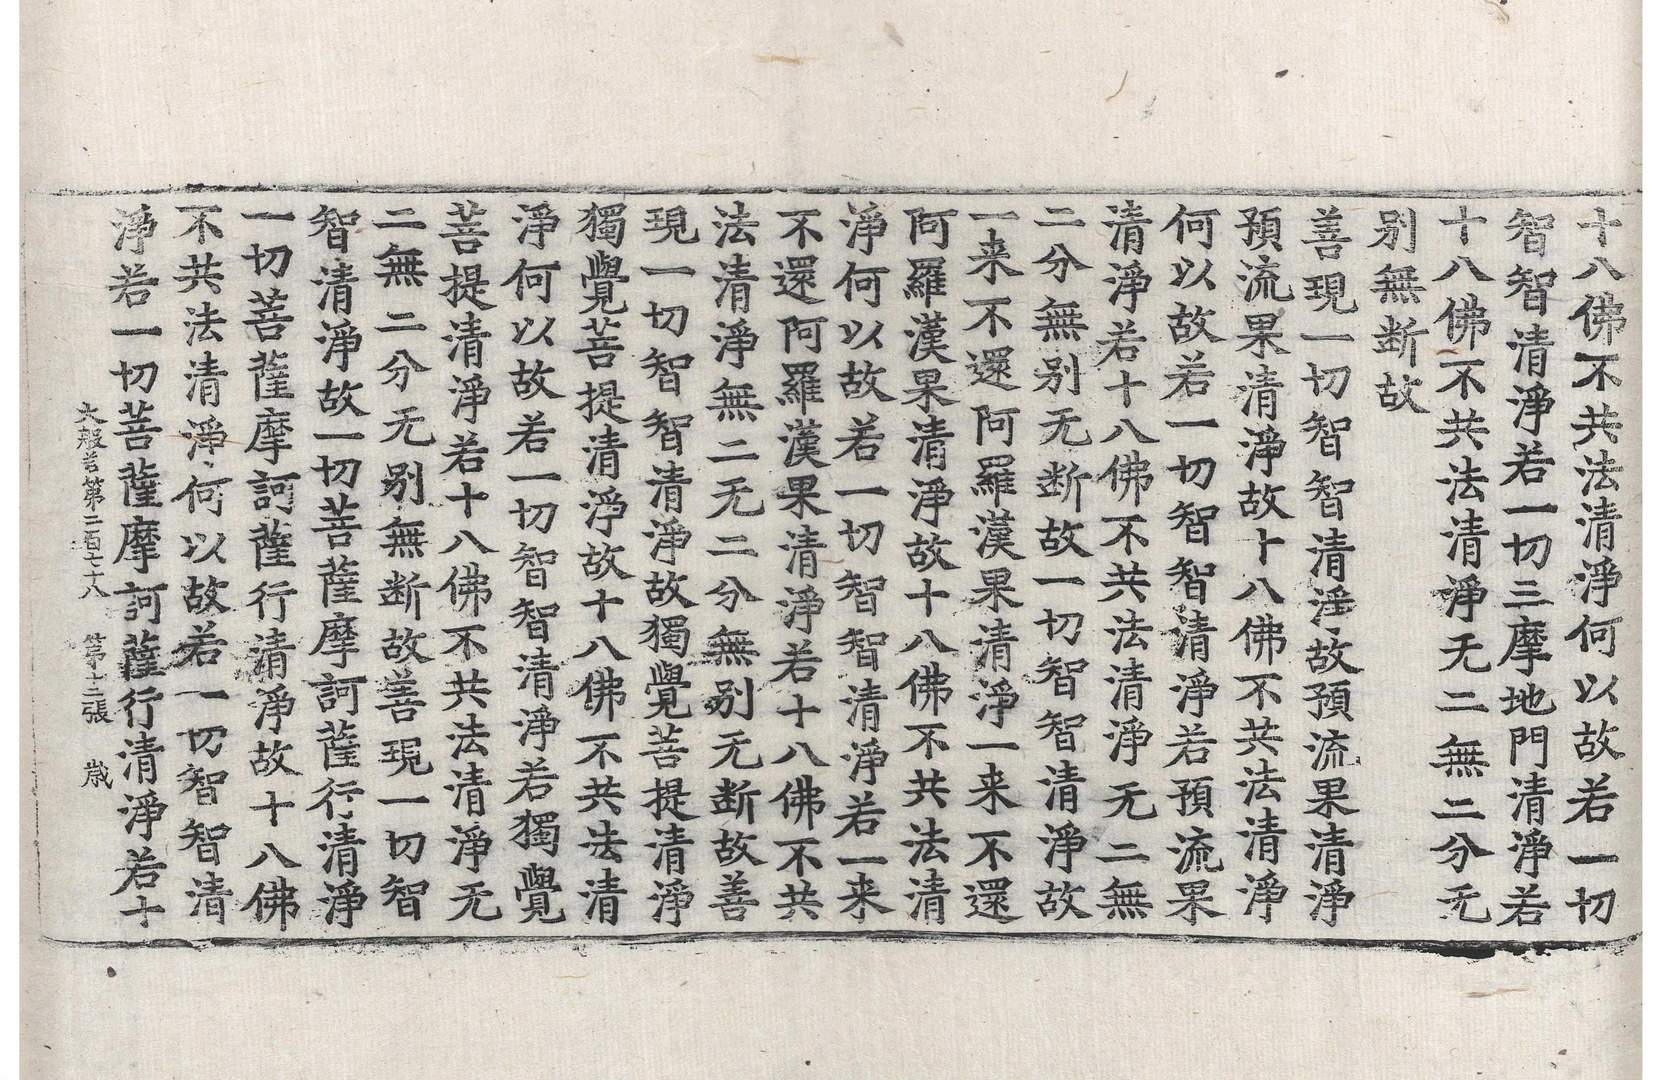 十八佛不共法清淨何以故若一切
智智清淨若一切三摩地門清淨若
十八佛不共法清淨无二無二分无
别無断故
善現一切智智清淨故預流果清淨
預流果清淨故十八佛不共法清淨
何以故若一切智智清淨若預流果
清淨若十八佛不共法清淨无二無
二分無别无断故一切智智清淨故
一来不還阿羅漢果清淨一来不還
阿羅漢果清淨故十八佛不共法清
淨何以故若一切智智清淨若一来
不還阿羅漢果清淨若十八佛不共
法清淨無二无二分無别无断故善
現一切智智清淨故獨覺菩提清淨
獨覺菩提清淨故十八佛不共法清
淨何以故若一切智智清淨若獨覺
菩提清淨若十八佛不共法清淨无
二無二分无别無断故善現一切智
智清淨故一切菩薩摩訶薩行清淨
一切菩薩摩訶薩行清淨故十八佛
不共法清淨何以故若一切智智清
淨若一切菩薩摩訶薩行清淨若十
大般若第二百七十八 第十二張 歳